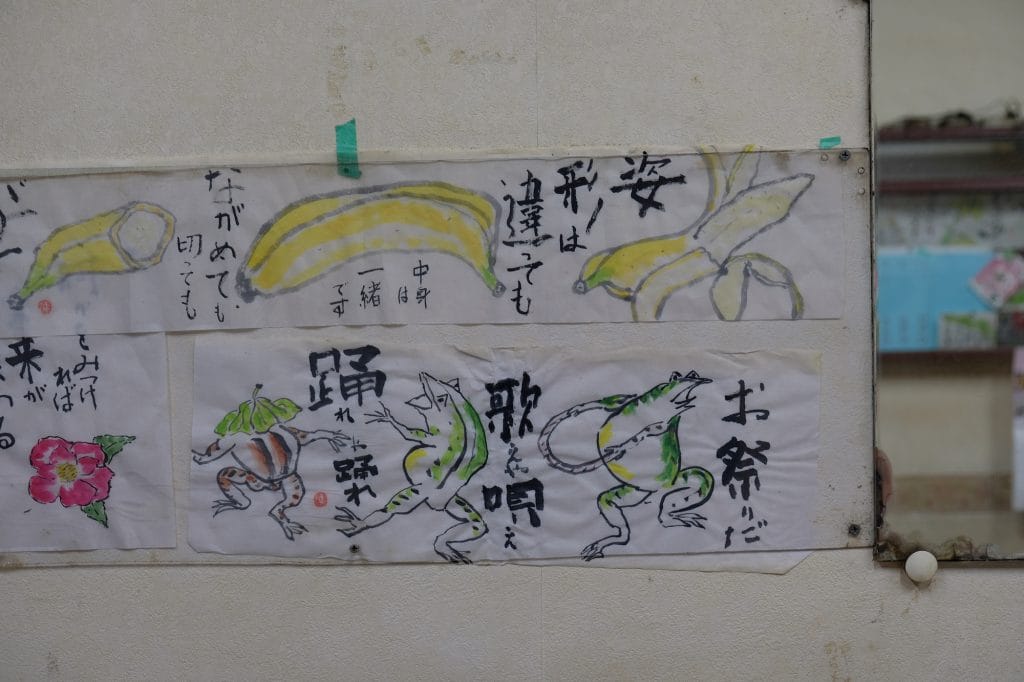 姿
形は
違っても
中身
は
一緒
です
ながめても
切っても
お祭りだ
歌えや
唄え
踊れや
踊れ
みつけ
れば
来が